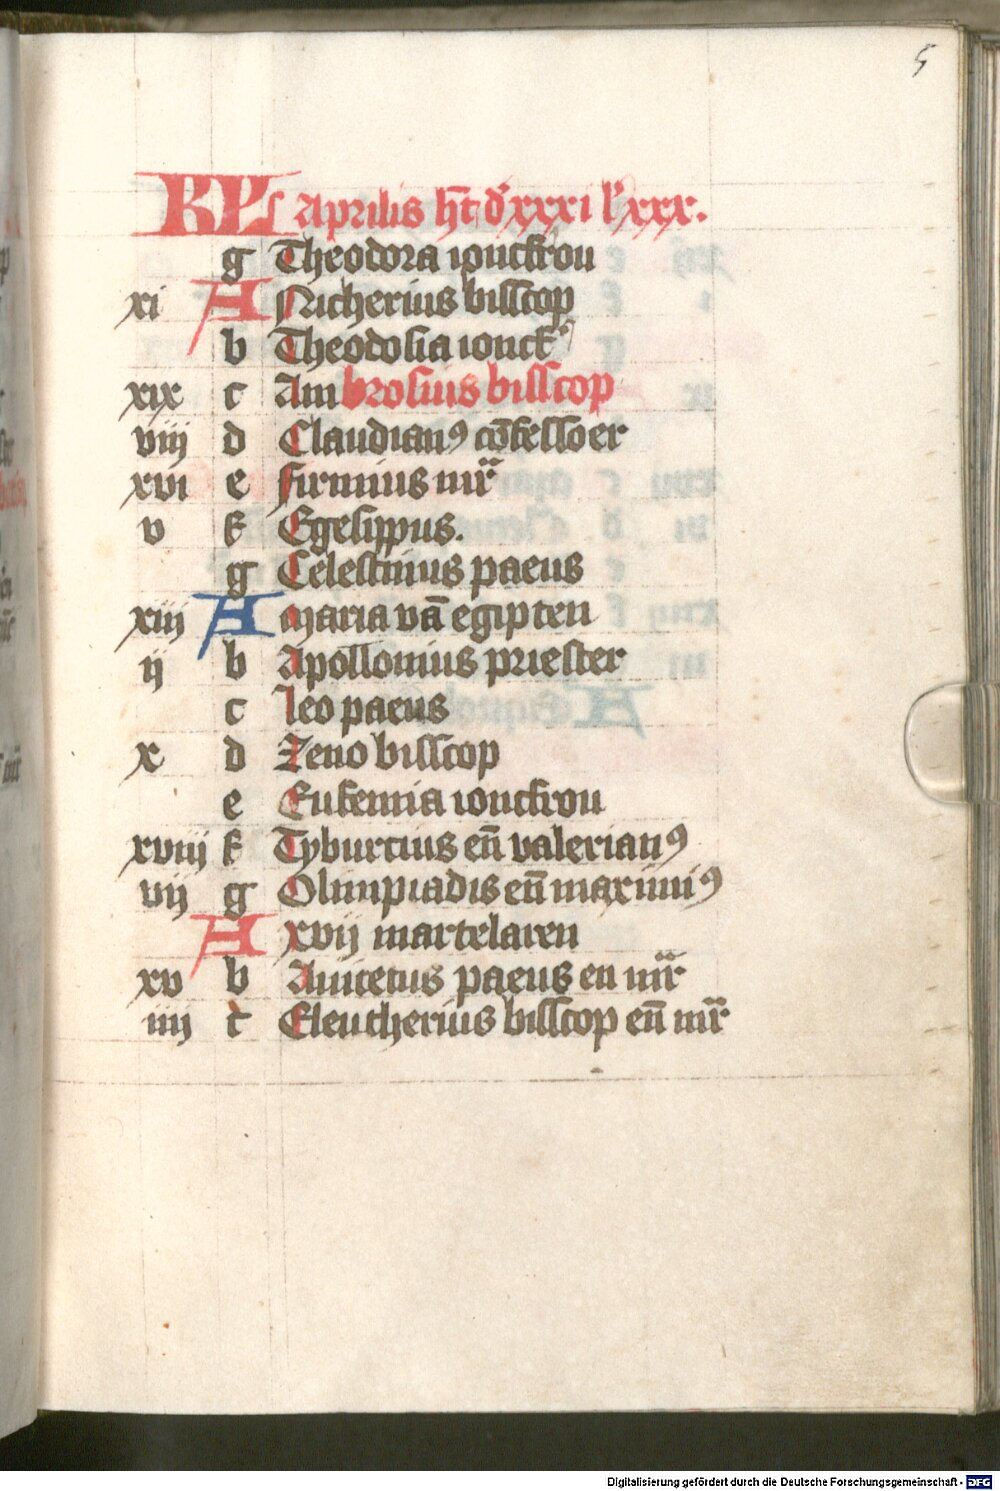 5
KL Aprilis ht̄ d' xxxi l' xxx.
g Theodora ionckfrou
xi A Nicherius bisscop
b Theodosia ionckr
xix c Ambrosius bisscop
viij d Claudianꝰ cōfessoer
xvi e Firmius mr̄
v f Egesippus.
g Celestinus paeus
xiij A Maria vā egipten
ij b Apollonius priester
c Leo paeus
x d Zeno bisscop
e Eufemia ionckfrou
xviij f Tyburcius en̄ valerianꝰ
vij g Olimpiadis en̄ maximiꝰ
A xvij martelaren
xv b Anicetus paeus en mr̄
iiij c Eleutherius bisscop en̄ mr̄
Digitalisierung gefördert durch die Deutsche Forschungsgemeinschaft - DFG